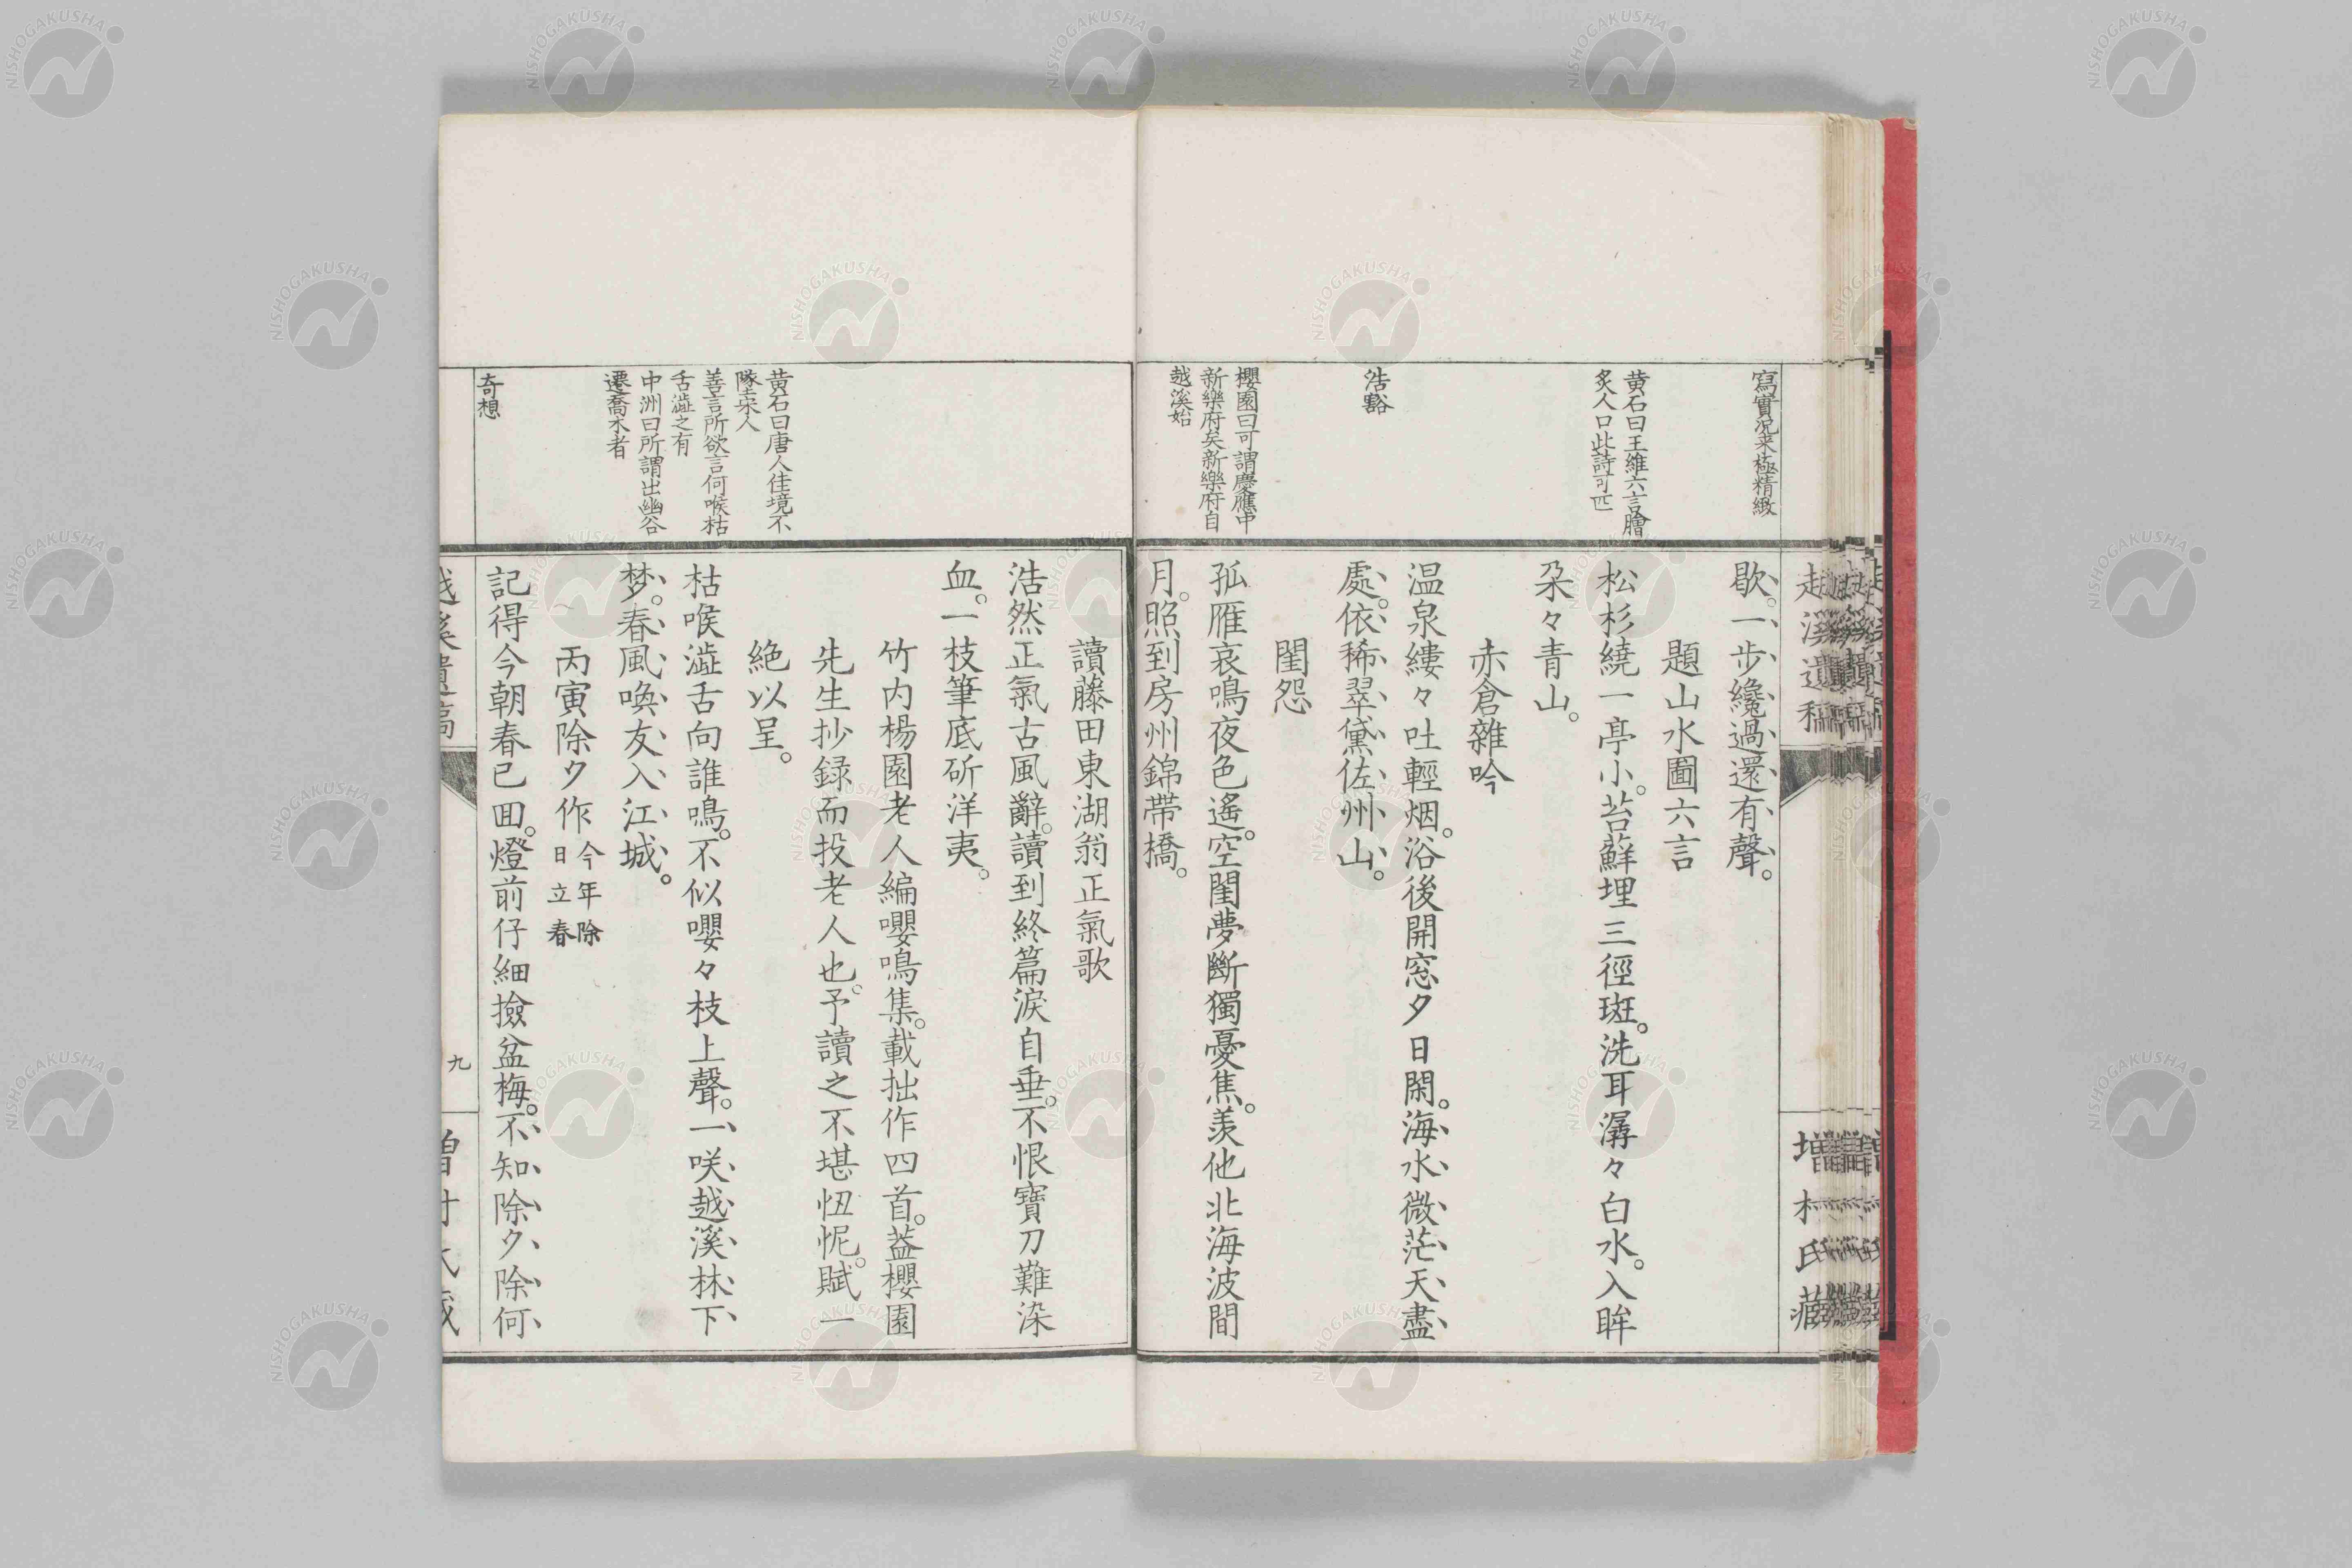 寫實況来極精緻
黄石曰王維六言膾
炙人口此詩可匹
浩豁
櫻園曰可謂慶應中
新樂府矣新樂府自
越溪始
越溪遺稿
増村氏藏
歇。一步纔過還有聲。
題山水圖六言
松杉繞一亭小。苔蘚埋三徑斑。洗耳潺々白水。入眸
朶々青山。
赤倉雜吟
温泉縷々吐輕烟。浴後開窓夕日閑。海水微茫天盡
處。依稀翠黛佐州山。
閨怨
孤雁哀鳴夜色遙。空閨夢斷獨憂焦。羨他北海波間
月。照到房州錦帶橋。
黄石曰唐人佳境不
墜宋人
善言所欲言何喉枯
舌澁之有
中洲曰所謂出幽谷
遷喬木者
奇想
讀藤田東湖翁正氣歌
浩然正氣古風辭。讀到終篇淚自垂。不恨寶刀難染
血。一枝筆底斫洋夷。
竹内楊園老人編嚶鳴集。載拙作四首。蓋櫻園
先生抄録而投老人也。予讀之不堪忸怩。賦一
絶以呈。
枯喉澁舌向誰鳴。不似嚶々枝上聲。一咲越溪林下
梦。春風喚友入江城。
丙寅除夕作 今年除
日立春
記得今朝春已回。燈前仔細撿盆梅。不知除夕除何
越溪遺稿
九
増村氏藏